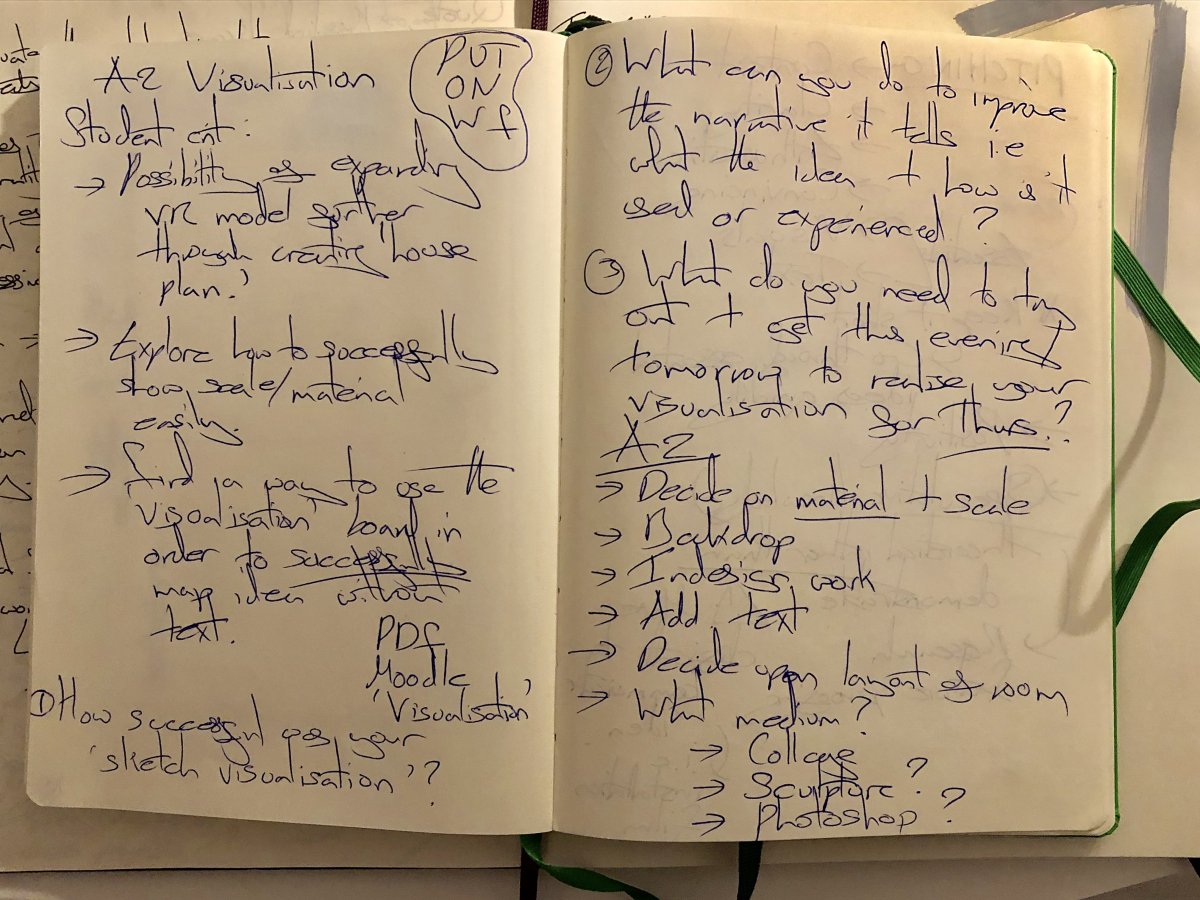 A2 Visualisation
PUT
ON
Wf
Student crit:
→ Possibility of expanding
VR model further
through creating 'house
plan.'
→ Explore how to successfully
show scale/material
easily.
→ Find a way to use the
'Visualisation' board in
order to successfully
map idea without
text.
PDF
Moodle
'Visualisation'
① How successful was your
'sketch visualisation'?
② What can you do to improve
the narrative it tells i.e
what the idea + how is it
used or experienced?
③ What do you need to try
out + get this evening/
tomorrow to realise your
visualisation for Thurs.?
A2
→ Decide on material + scale
→ Backdrop
→ Indesign work
→ Add text
→ Decide upon layout of room
→ What medium?
→ Collage
→ Sculpture?
→ Photoshop?